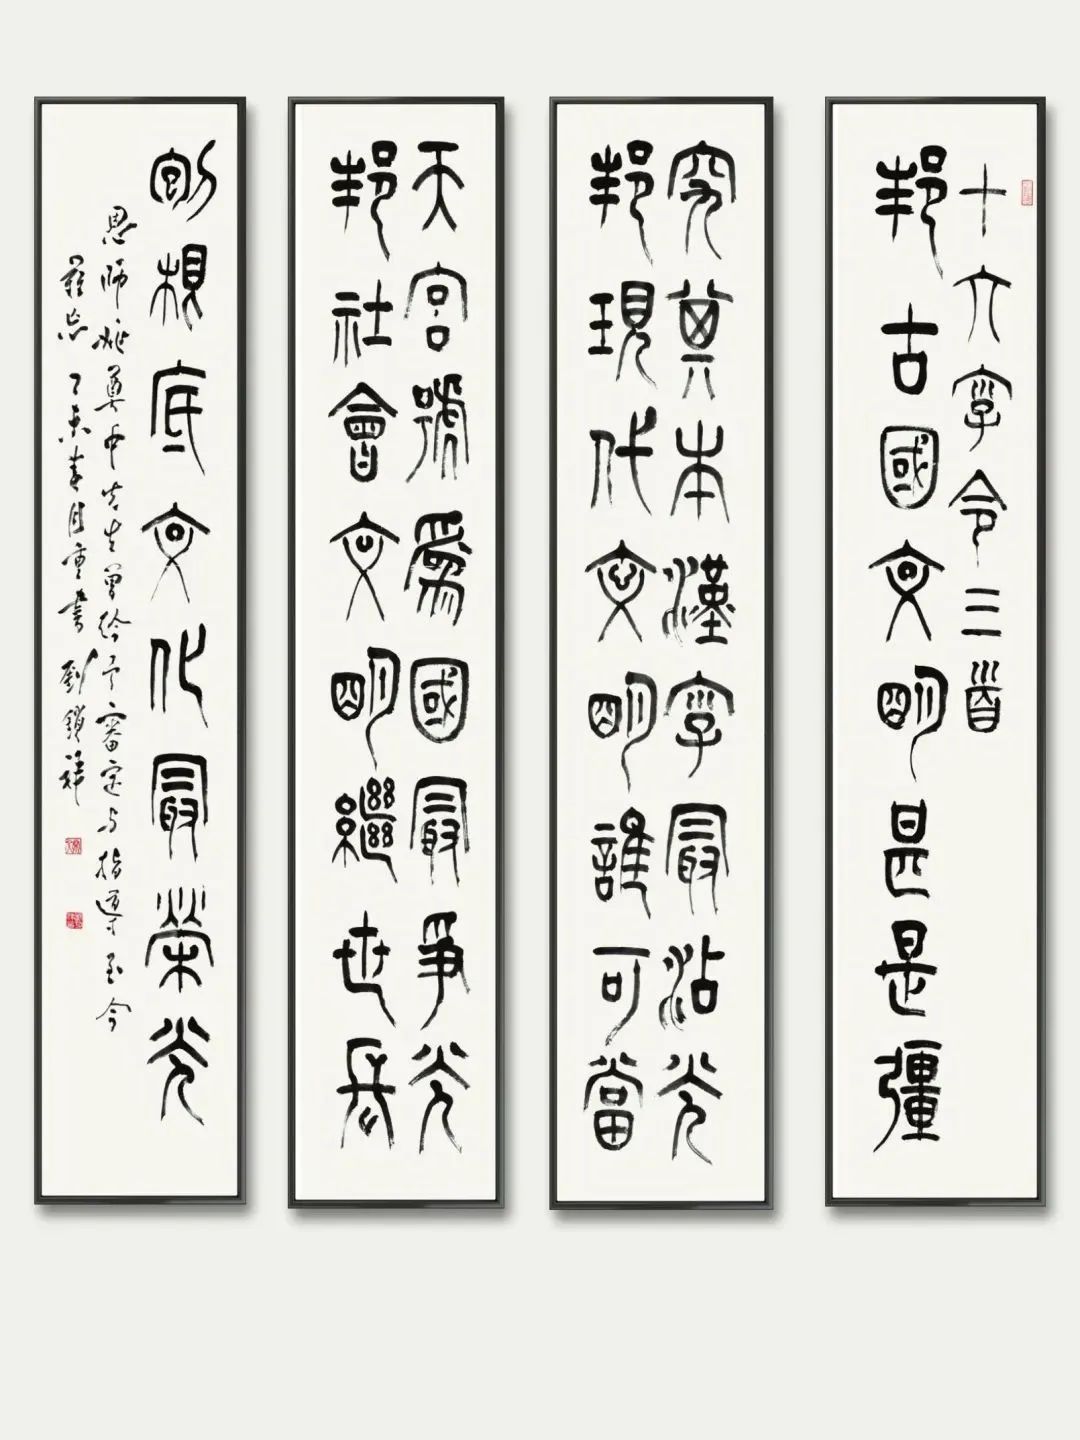 十六字令三首
邦古國文明甚是彊
究其本漢字最沾光
邦現代文明誰可當
天宮號爲國最爭光
邦社會文明繼世長
根底文化最榮光
恩師姚奠中先生曾給予審定与指導至今
難忘 乙未春月重書 劉鎖祥